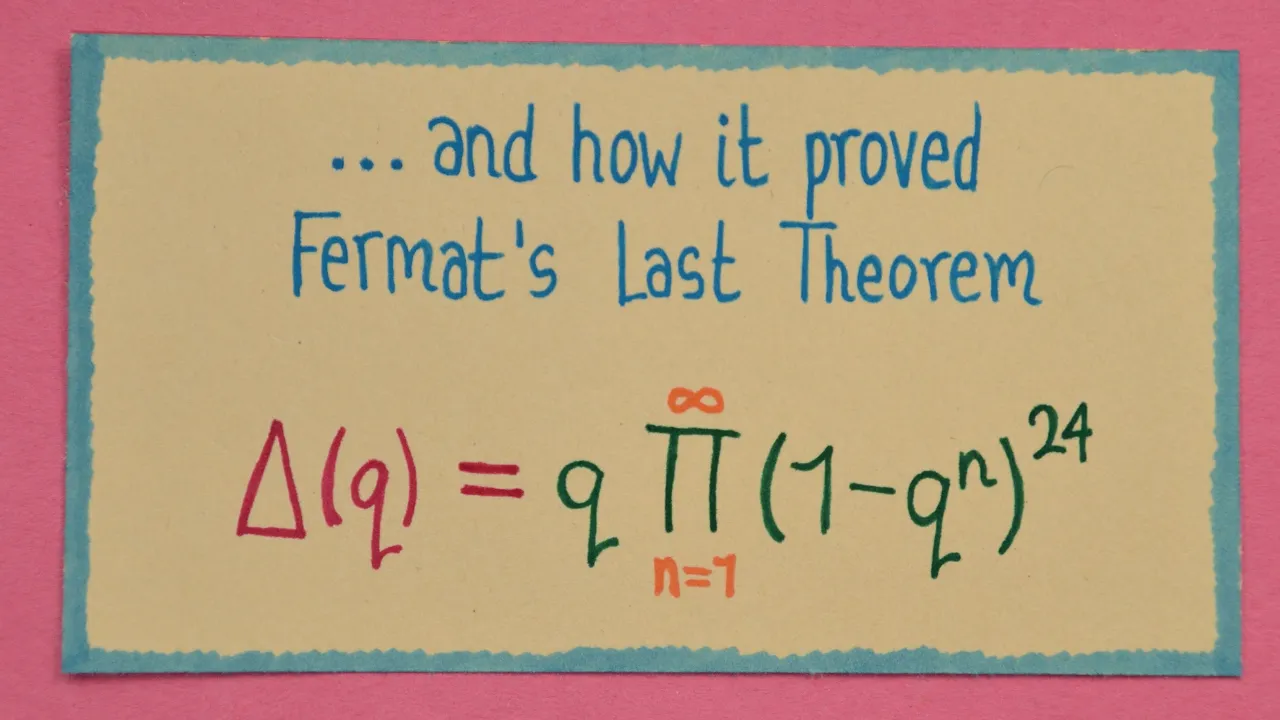 ... and how it proved
Fermat's Last Theorem
∞
Δ(q) = q ∏ (1-qⁿ)²⁴
n=1